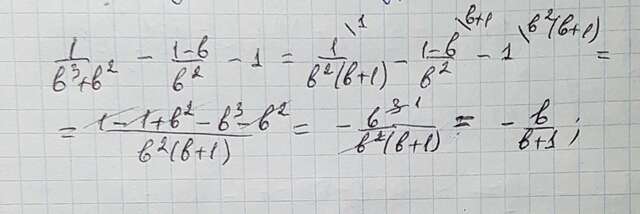 1/(b³+b²) − (1−b)/b² − 1 = 1\1/(b²(b+1)) − (1−b)\b+1/b² − 1\b²(b+1) =
= (1−1+b²−b³−b²)/(b²(b+1)) = − b³ 1/(b²(b+1)) = − b/(b+1);